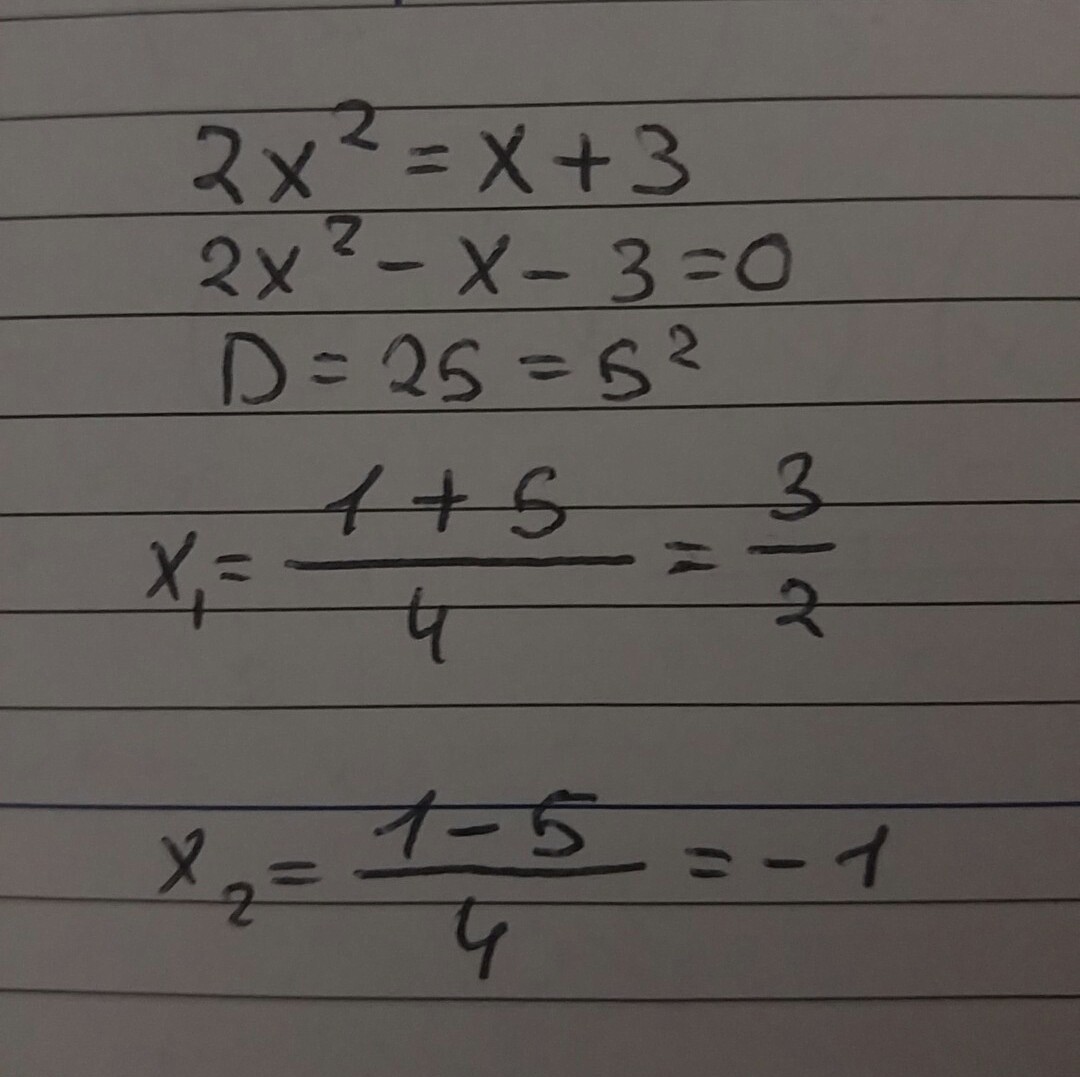 2x² = x + 3
2x² - x - 3 = 0
D = 25 = 5²
x₁ = (1 + 5)/4 = 3/2
x₂ = (1 - 5)/4 = -1